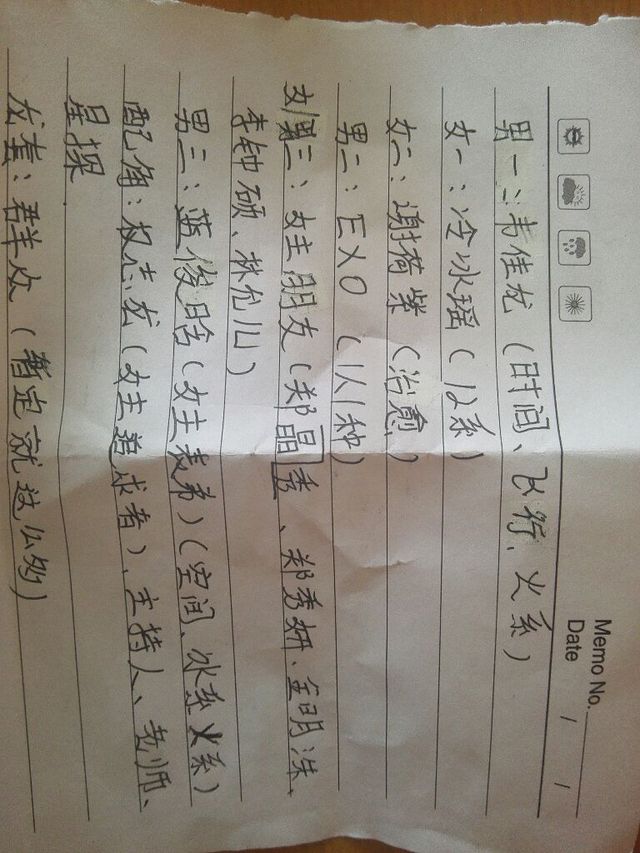 Memo No.
Date / /
男一:韦佳龙(时间、飞行、火系)
女一:冷冰瑶(12系)
女二:谢荷紫(治愈)
男二:EXO(以1种)
女三:女主朋友(郑晶秀、郑秀妍、金明洙、
李钟硕、林允儿)
男三:蓝俊晗(女主表弟)(空间、冰系火系)
配角:权志龙(女主追求者)、主持人、老师、
星探
龙套:群众(暂定就这么多)